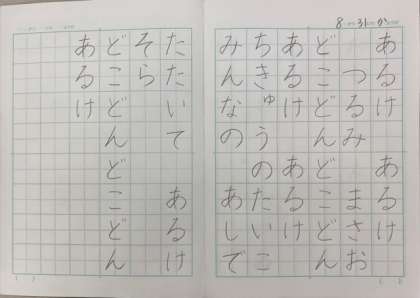 8 31 か
あるけ　あるけ
つるみ　まさお
どこどんどこどん
あるけ　あるけ
ちきゅうのたいこ
みんなの　あしで
たたいて　あるけ
そら
どこどんどこどん
あるけ